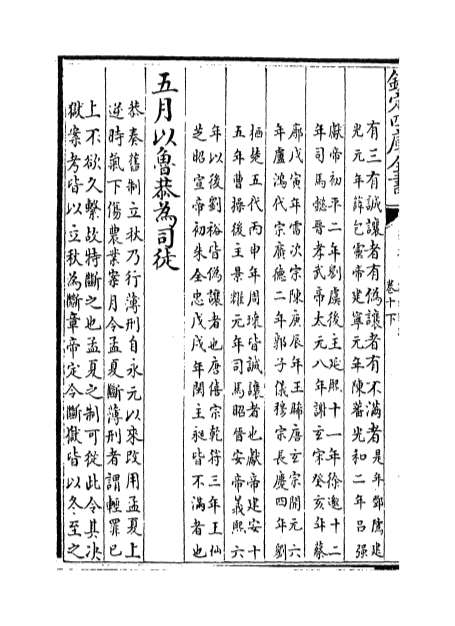 欽定四庫全書
卷十下
有三有誠讓者有偽讓者有不滿者是年鄧隲延
光元年薛包靈帝建寧元年陳蕃光和二年呂強
獻帝初平二年劉虞後主延熙十一年徐邈十二
年司馬懿晉孝武帝太元八年謝玄宗癸亥年蔡
廓戊寅年雷次宗陳庚辰年王晞唐玄宗開元六
年盧鴻代宗廣德二年郭子儀穆宗長慶四年劉
栖楚五代丙申年周瓌皆誠讓者也獻帝建安十
五年曹操後主景耀元年司馬昭晉安帝義熙六
年以後劉裕皆偽讓者也唐僖宗乾符三年王仙
芝昭宣帝初朱全忠戊戌年閩主昶皆不滿者也
五月以魯恭為司徒
恭奏舊制立秋乃行薄刑自永元以來改用孟夏上
逆時氣下傷農業案月令孟夏斷薄刑者謂輕罪已
上不欲久繫故特斷之也孟夏之制可從此令其决
獄案考皆以立秋為斷章帝定令斷獄皆以冬至之